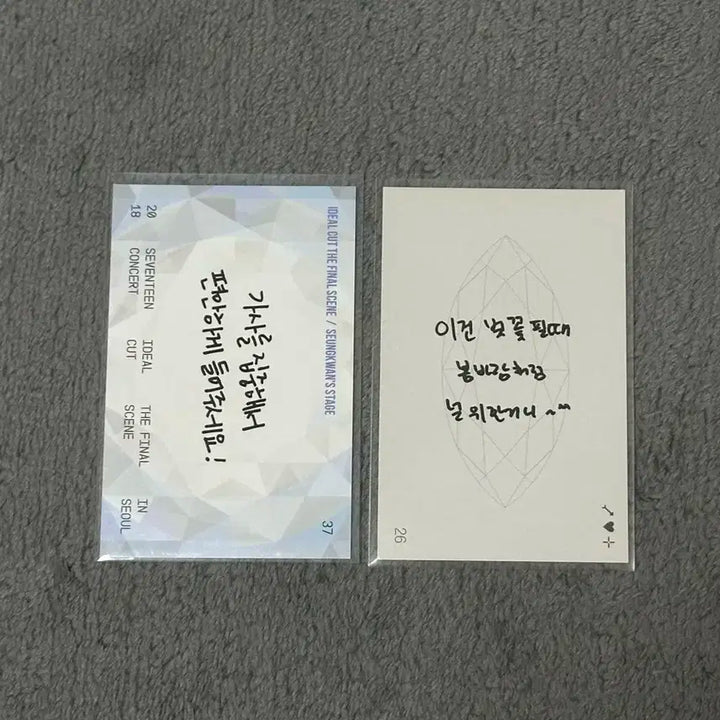 IDEAL CUT THE FINAL SCENE / SEUNGKWAN'S STAGE
가사를 집중해서
편안하게 들어주세요!
20
18
SEVENTEEN
CONCERT
IDEAL
CUT
THE FINAL
SCENE
IN
SEOUL
37
이건 벚꽃 필때
봄바람처럼
널 위한거니 ~^^
26